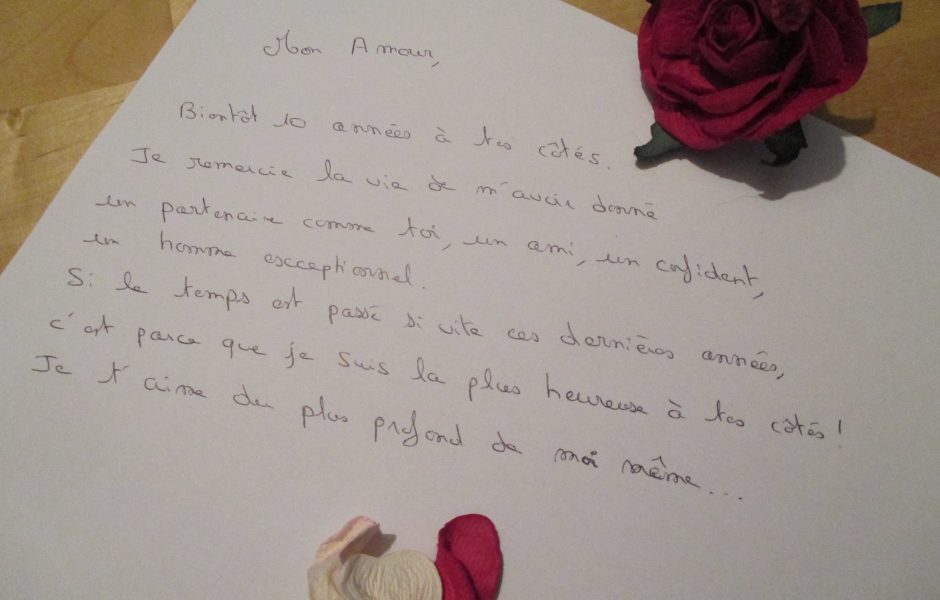 Mon Amour,
Bientôt 10 années à tes côtés.
Je remercie la vie de m'avoir donné
un partenaire comme toi, un ami, un confident,
un homme exceptionnel.
Si le temps est passé si vite ces dernières années,
c'est parce que je suis la plus heureuse à tes côtés!
Je t'aime du plus profond de moi même...